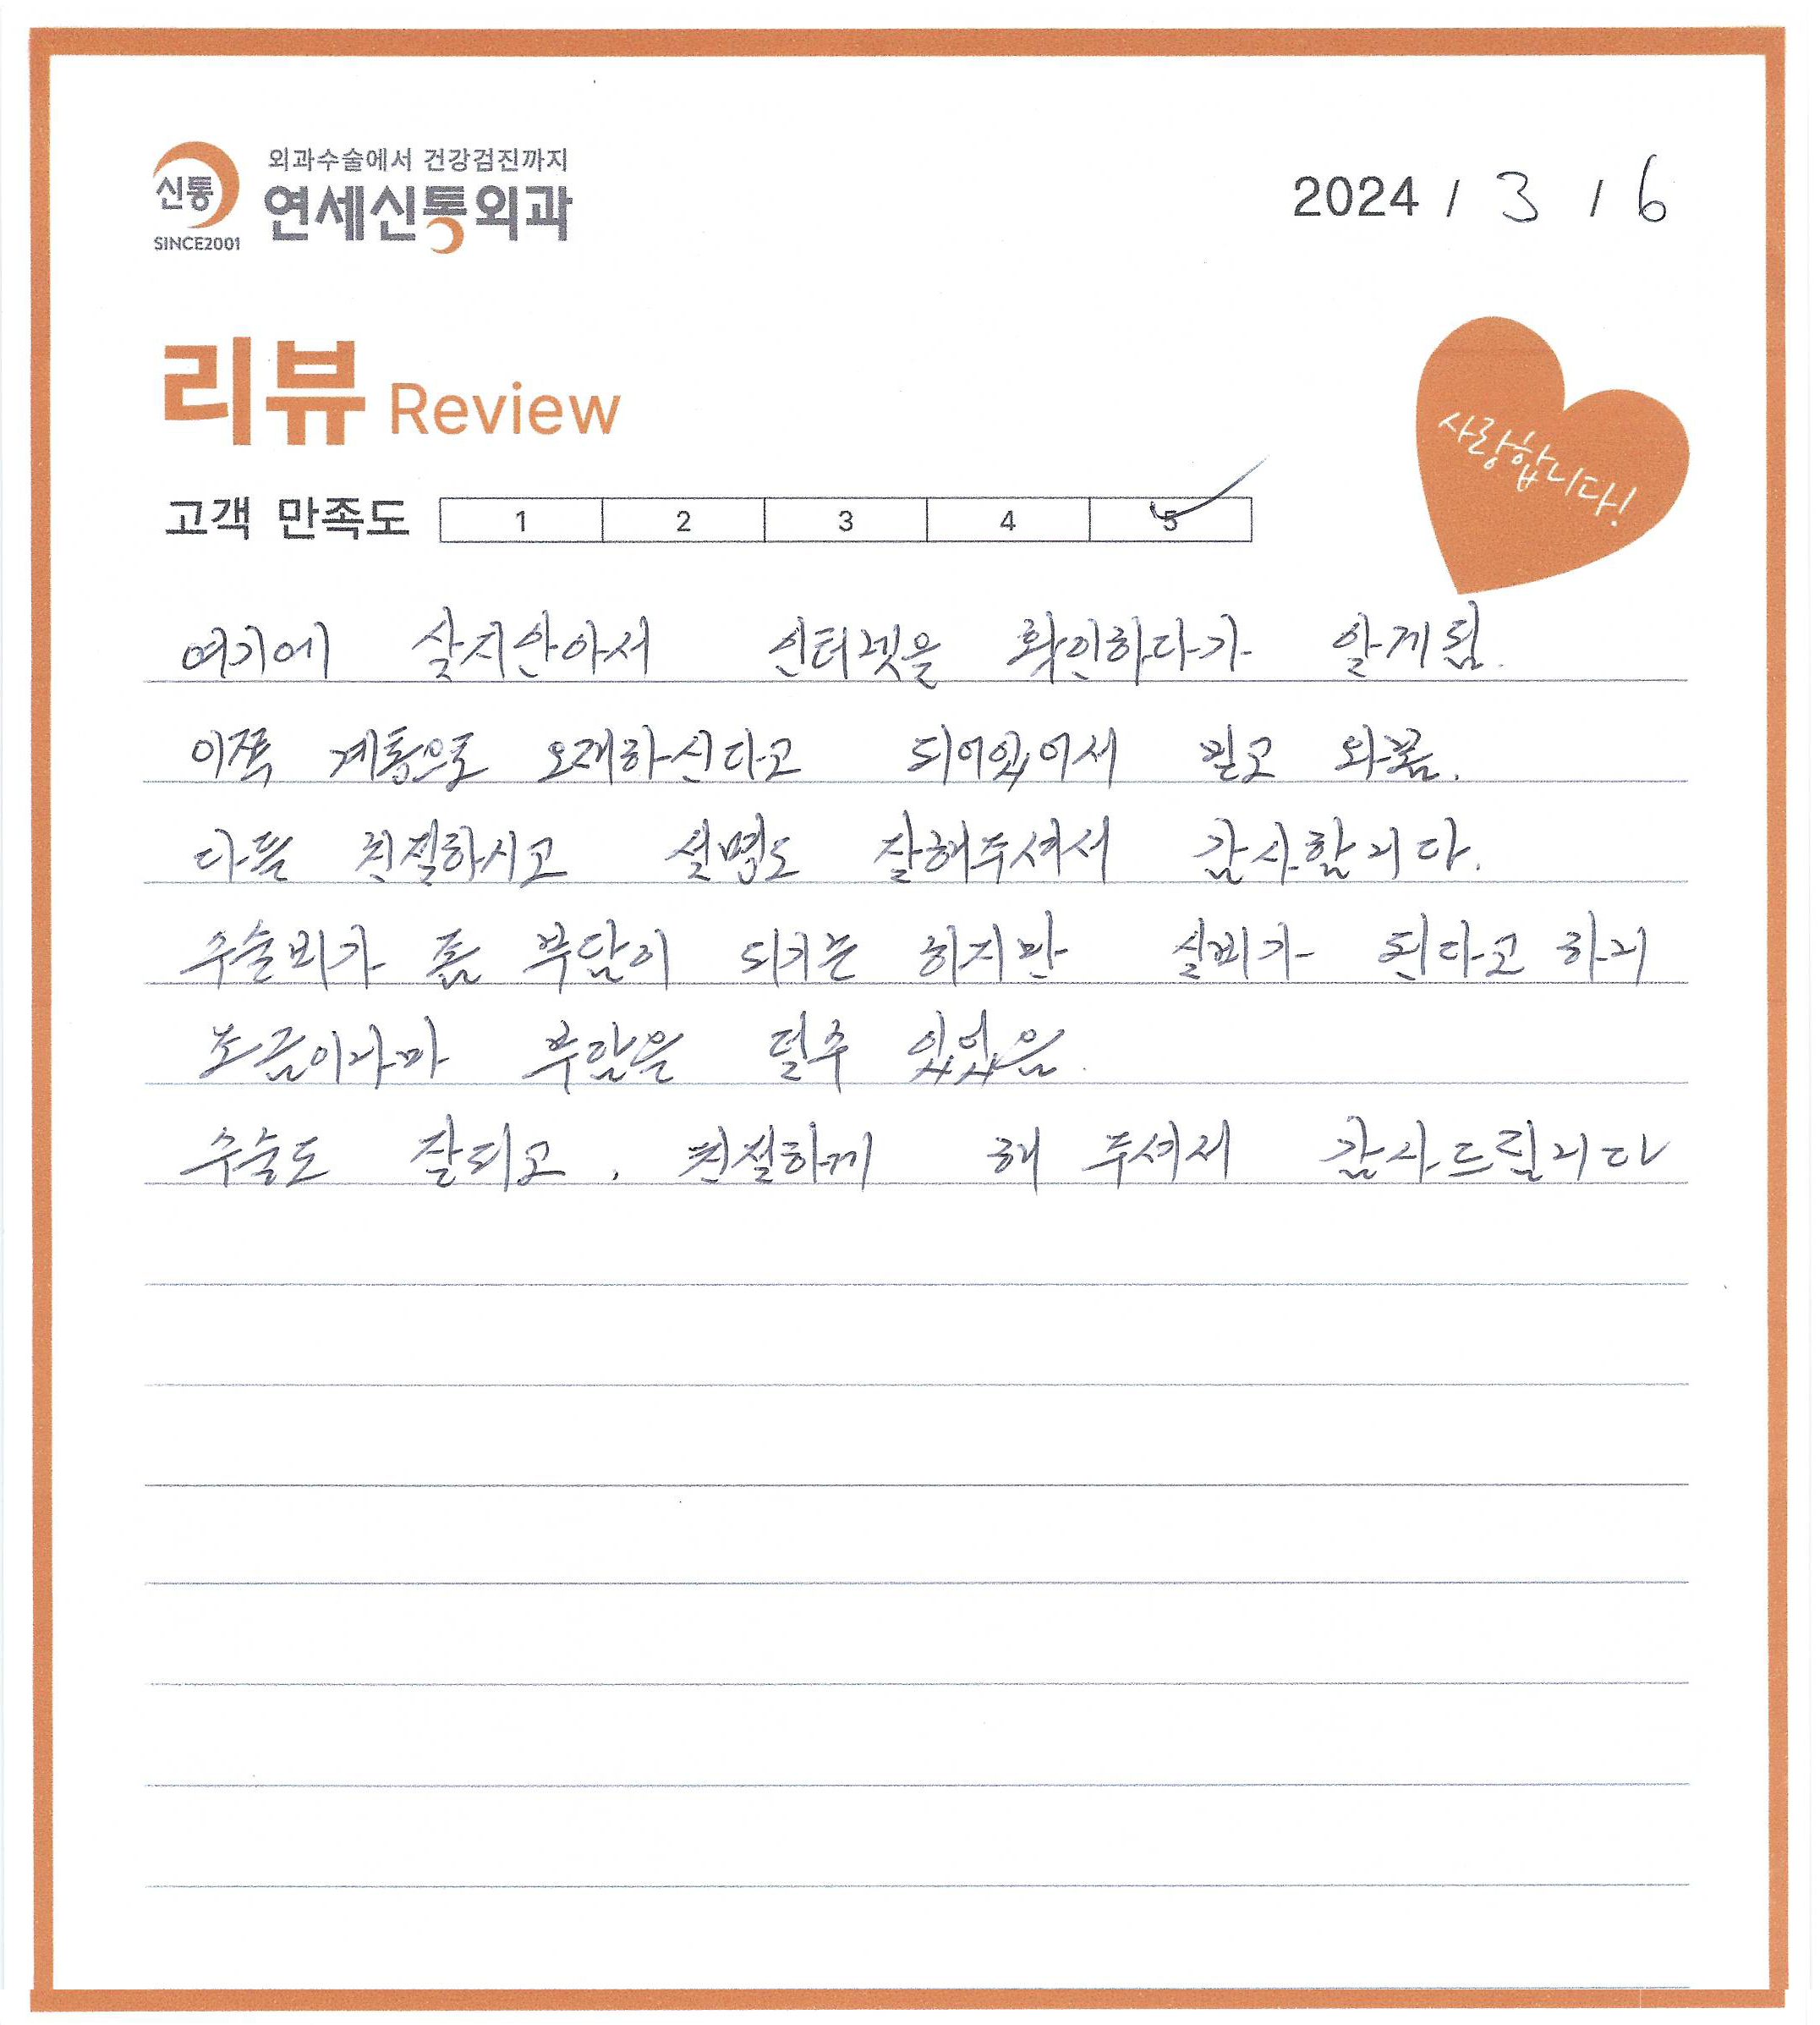 외과수술에서 건강검진까지
신통
연세신통외과
SINCE2001
2024 / 3 / 6
리뷰 Review
사랑합니다!
고객 만족도 1 2 3 4 5
여기에 살지안아서 인터넷을 확인하다가 알게됨.
이쪽 계통으로 오재하신다고 되어있어서 믿고 와봄.
다들 친절하시고 설명도 잘해주셔서 감사합니다.
수술비가 좀 부담이 되기는 하지만 실비가 된다고 하니
조금이나마 부담을 덜수 있었음.
수술도 잘되고, 친절하게 해 주셔서 감사드립니다